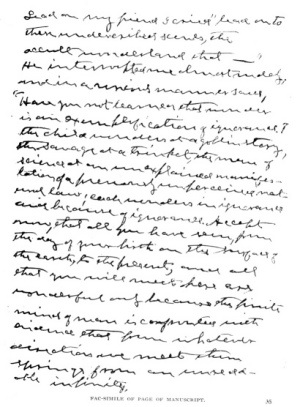 Lead on my friend I cried "lead on to
then undescribed scenes, the
occult wonderland that —"
He interrupted me almost rudely,
and in a serious manner said,
"Have you not learned that wonder
is an exemplification of ignorance?
the child wonders at a goblin story,
the savage at a trinket, the man of
science at an unexplained manifes-
tation of a previously unperceived nat-
ural law; each wonders in ignorance
and because of ignorance. Accept
now, that all you have seen, from
the day of your birth on the surface of
the earth, to the present, and all
that you will meet here are
wonderful only because the finite
mind of man is confronted with
evidence that from whatever
direction we meet them
springs from an unsee-
able infinity,
FAC-SIMILE OF PAGE OF MANUSCRIPT.
35